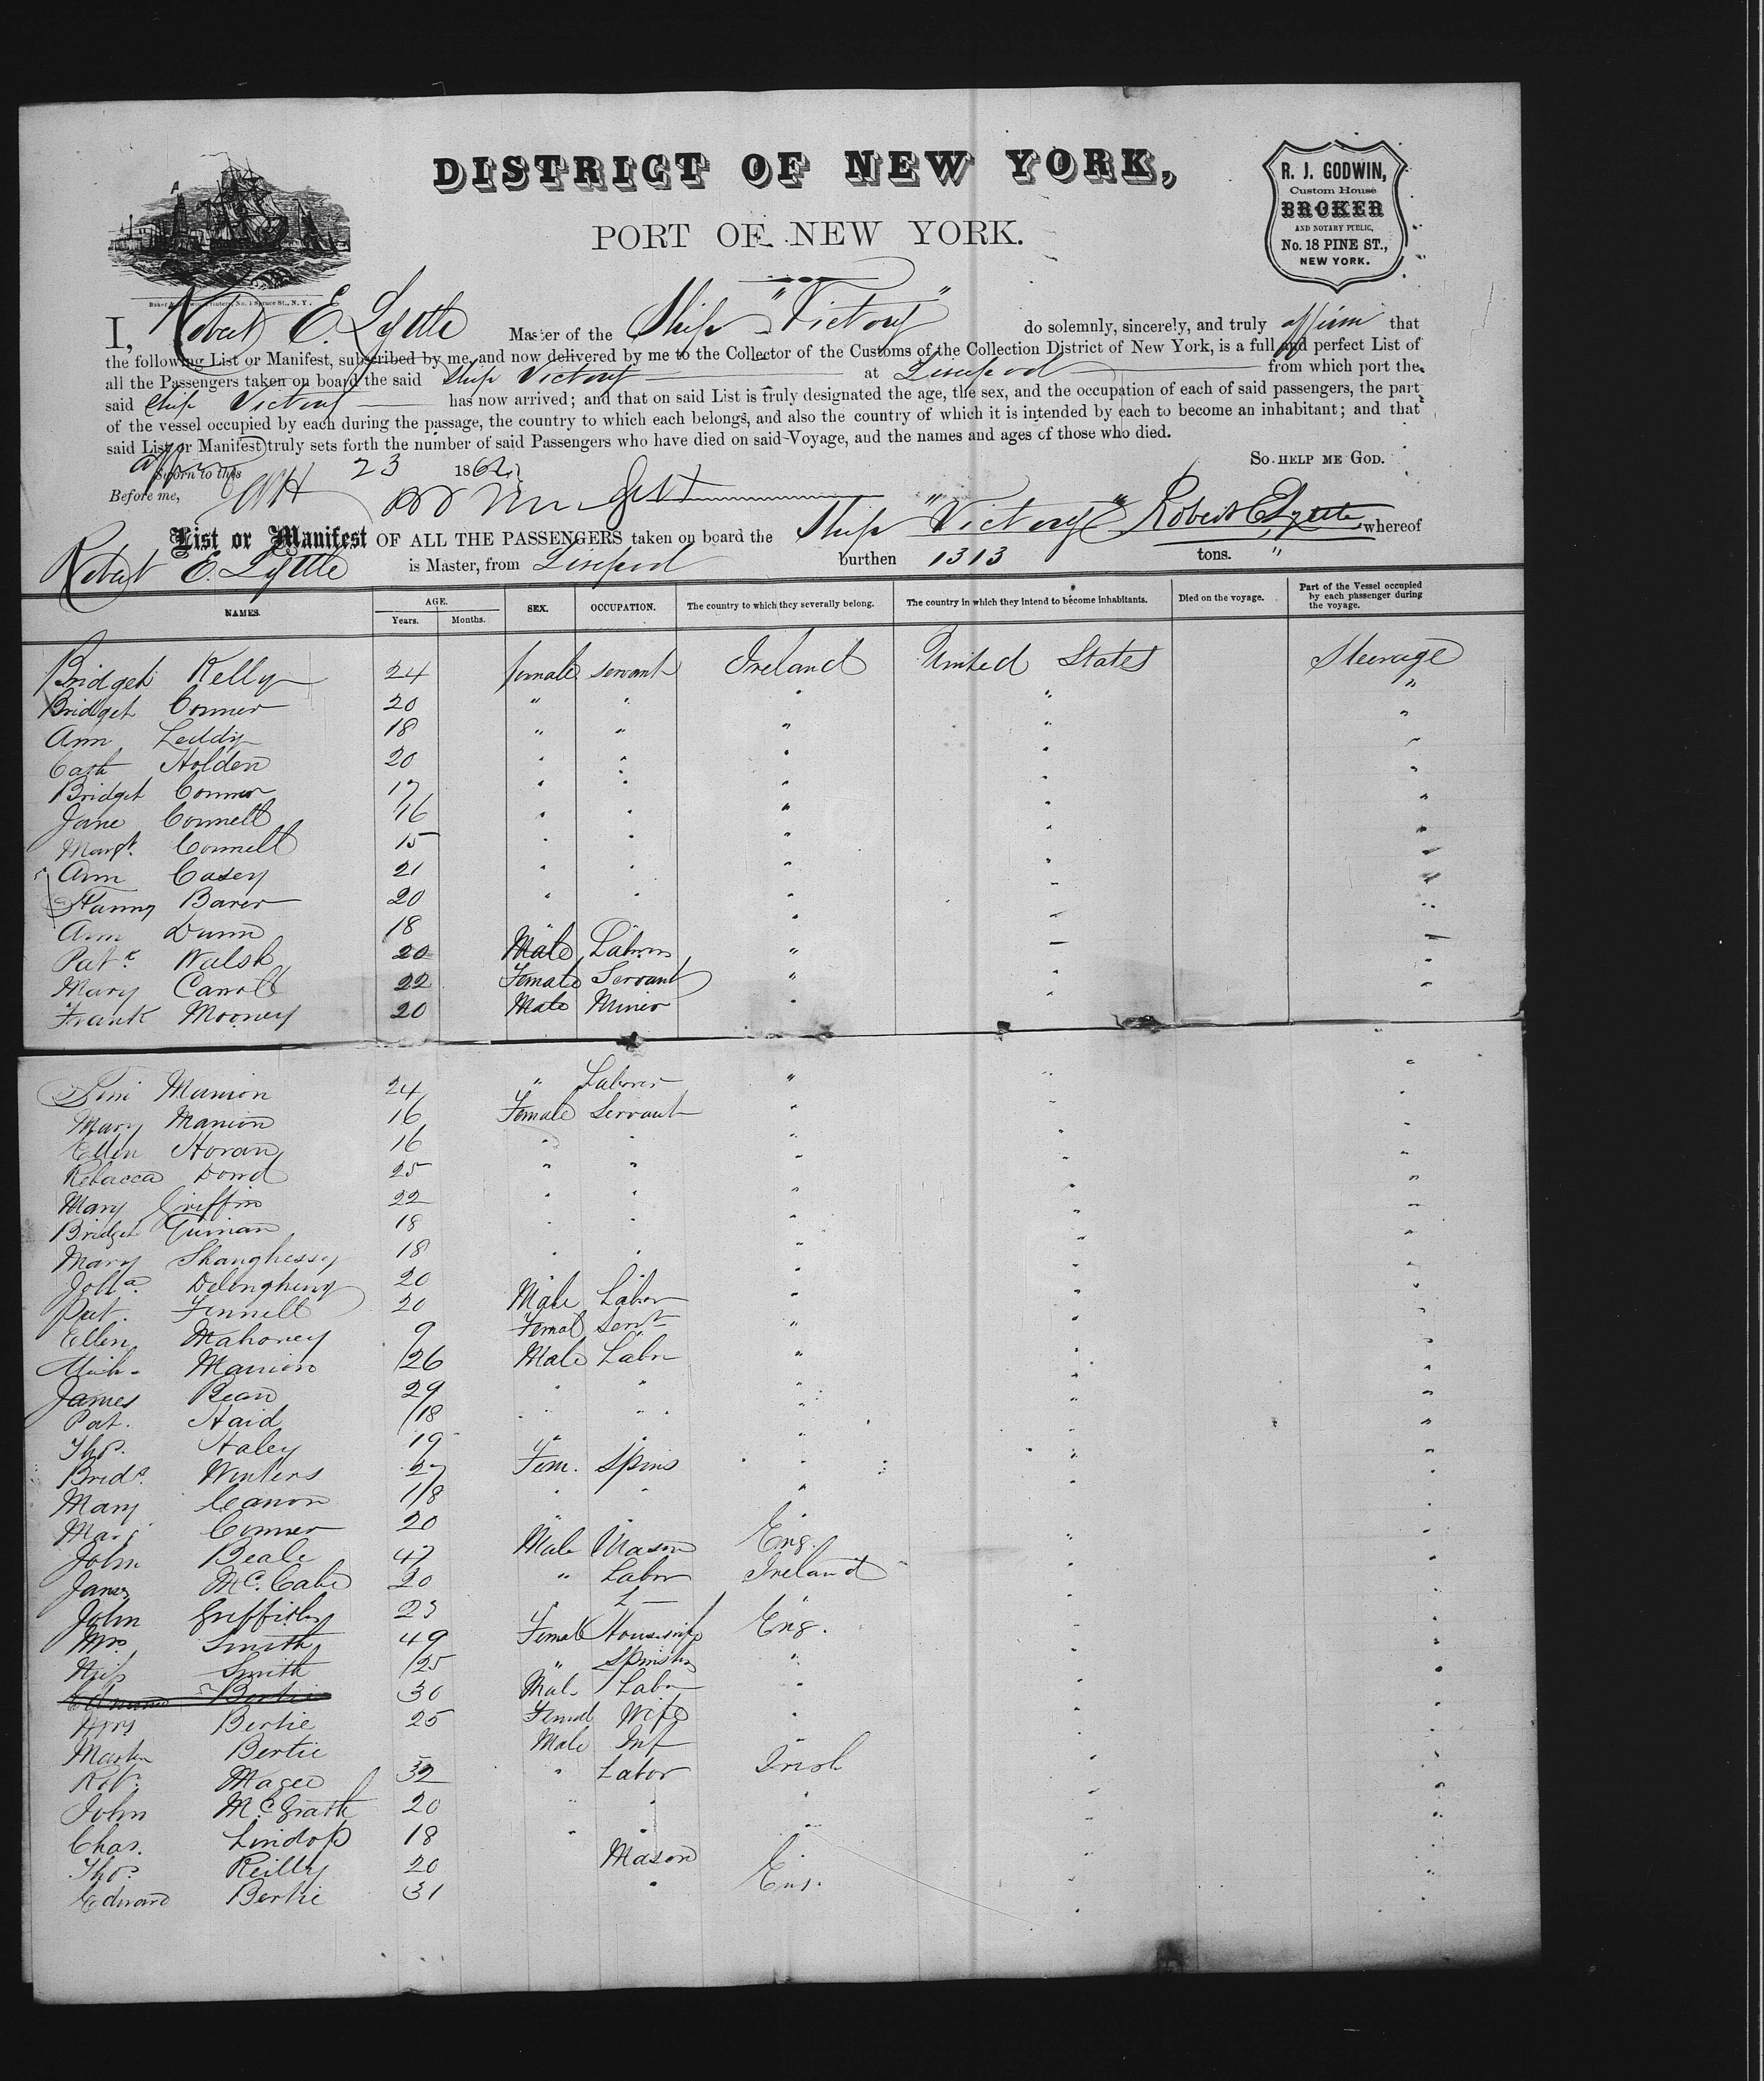 DISTRICT OF NEW YORK,
PORT OF NEW YORK.
R. J. GODWIN,
Custom House
BROKER
AND NOTARY PUBLIC,
No. 18 PINE ST.,
NEW YORK.
Baker & Godwin, Printers, No. 1 Spruce St., N. Y.
I, Robert E. Lyttle Master of the Ship "Victory" do solemnly, sincerely, and truly affirm that
the following List or Manifest, subscribed by me, and now delivered by me to the Collector of the Customs of the Collection District of New York, is a full and perfect List of
all the Passengers taken on board the said Ship Victory at Liverpool from which port the
said Ship Victory has now arrived; and that on said List is truly designated the age, the sex, and the occupation of each of said passengers, the part
of the vessel occupied by each during the passage, the country to which each belongs, and also the country of which it is intended by each to become an inhabitant; and that
said List or Manifest truly sets forth the number of said Passengers who have died on said Voyage, and the names and ages of those who died.
SO HELP ME GOD.
Sworn to this 23 1862
Before me,
List or Manifest OF ALL THE PASSENGERS taken on board the Ship "Victory" Robert E Lyttle whereof
Robert E. Lyttle is Master, from Liverpool burthen 1313 tons. "
NAMES. AGE. Years. Months. SEX. OCCUPATION. The country to which they severally belong. The country in which they intend to become inhabitants. Died on the voyage. Part of the Vessel occupied by each passenger during the voyage.
Bridget Kelly 24 female servant Ireland United States Steerage
Bridget Conner 20 " " " " "
Ann Leddy 18 " " " " "
Cath Holden 20 " " " " "
Bridget Conner 17 " " " " "
Jane Connell 16 " " " " "
Margt. Connell 15 " " " " "
Ann Casey 21 " " " " "
Fanny Barer 20 " " " " "
Ann Dunn 18 " " " " "
Patk. Walsh 20 Male Laborer " " "
Mary Carroll 22 Female Servant " " "
Frank Mooney 20 Male Miner " " "
Manion 24 " Laborer " " "
Mary Manion 16 Female Servant " " "
Ellen Horan 16 " " " " "
Rebecca Dowd 25 " " " " "
Mary Griffin 22 " " " " "
Bridget Guinan 18 " " " " "
Mary Shanghessy 18 " " " " "
20 " " " " "
Pat. Fennell 20 Male Labor " " "
Ellen Mahoney 9 Femal Servt " " "
Mich. Manion 26 Male Labr " " "
James Bean 29 " " " " "
Pat. Haid 18 " " " " "
Thos. Haley 19 " " " " "
Bridt. Winters 27 Fem. Spins " " "
Mary Canon 18 " " " " "
Marg Conner 20 " " " " "
John Beale 47 Male Mason Eng. " "
James McCabe 20 " Labor Ireland " "
John Griffiths 23 " L " " "
Mrs Smith 49 Female Housewife Eng. " "
Miss Smith 25 " Spinster " " "
Edward Bertie 30 Male Labor " " "
Mrs Bertie 25 Femal Wife " " "
Martin Bertie Male Inf " " "
Robt. Magee 32 " Labor Irish " "
John McGrath 20 " " " " "
Chas. Lindop 18 " " " " "
Thos. Reilly 20 Mason " " "
Edward Bertie 31 " Eng. " "